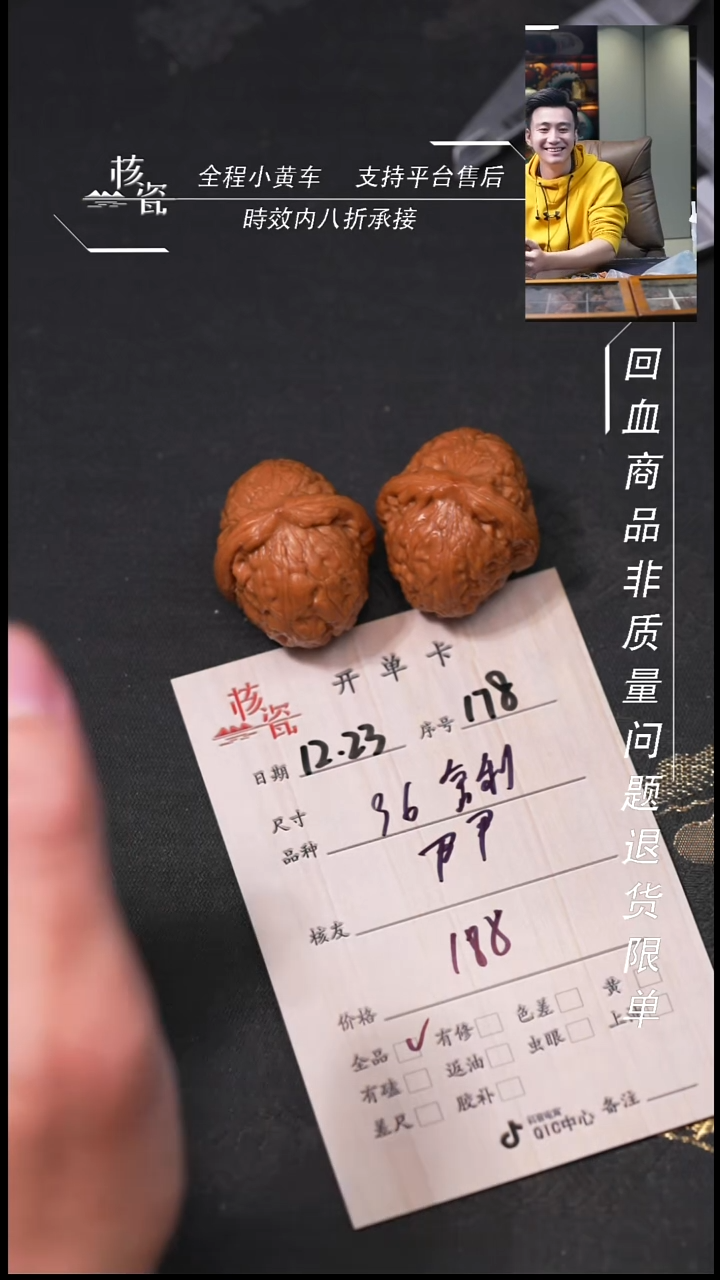 核瓷
全程小黄车 支持平台售后
時效内八折承接
回血商品非质量问题退货限单
核瓷
开单卡
日期 12.23 序号 178
尺寸
品种 36 京利
尹尹
核友
188
价格
全品 ✓ 有修 色差 黄
有磕 返油 虫眼 上
差尺 胶补
QIC中心 备注